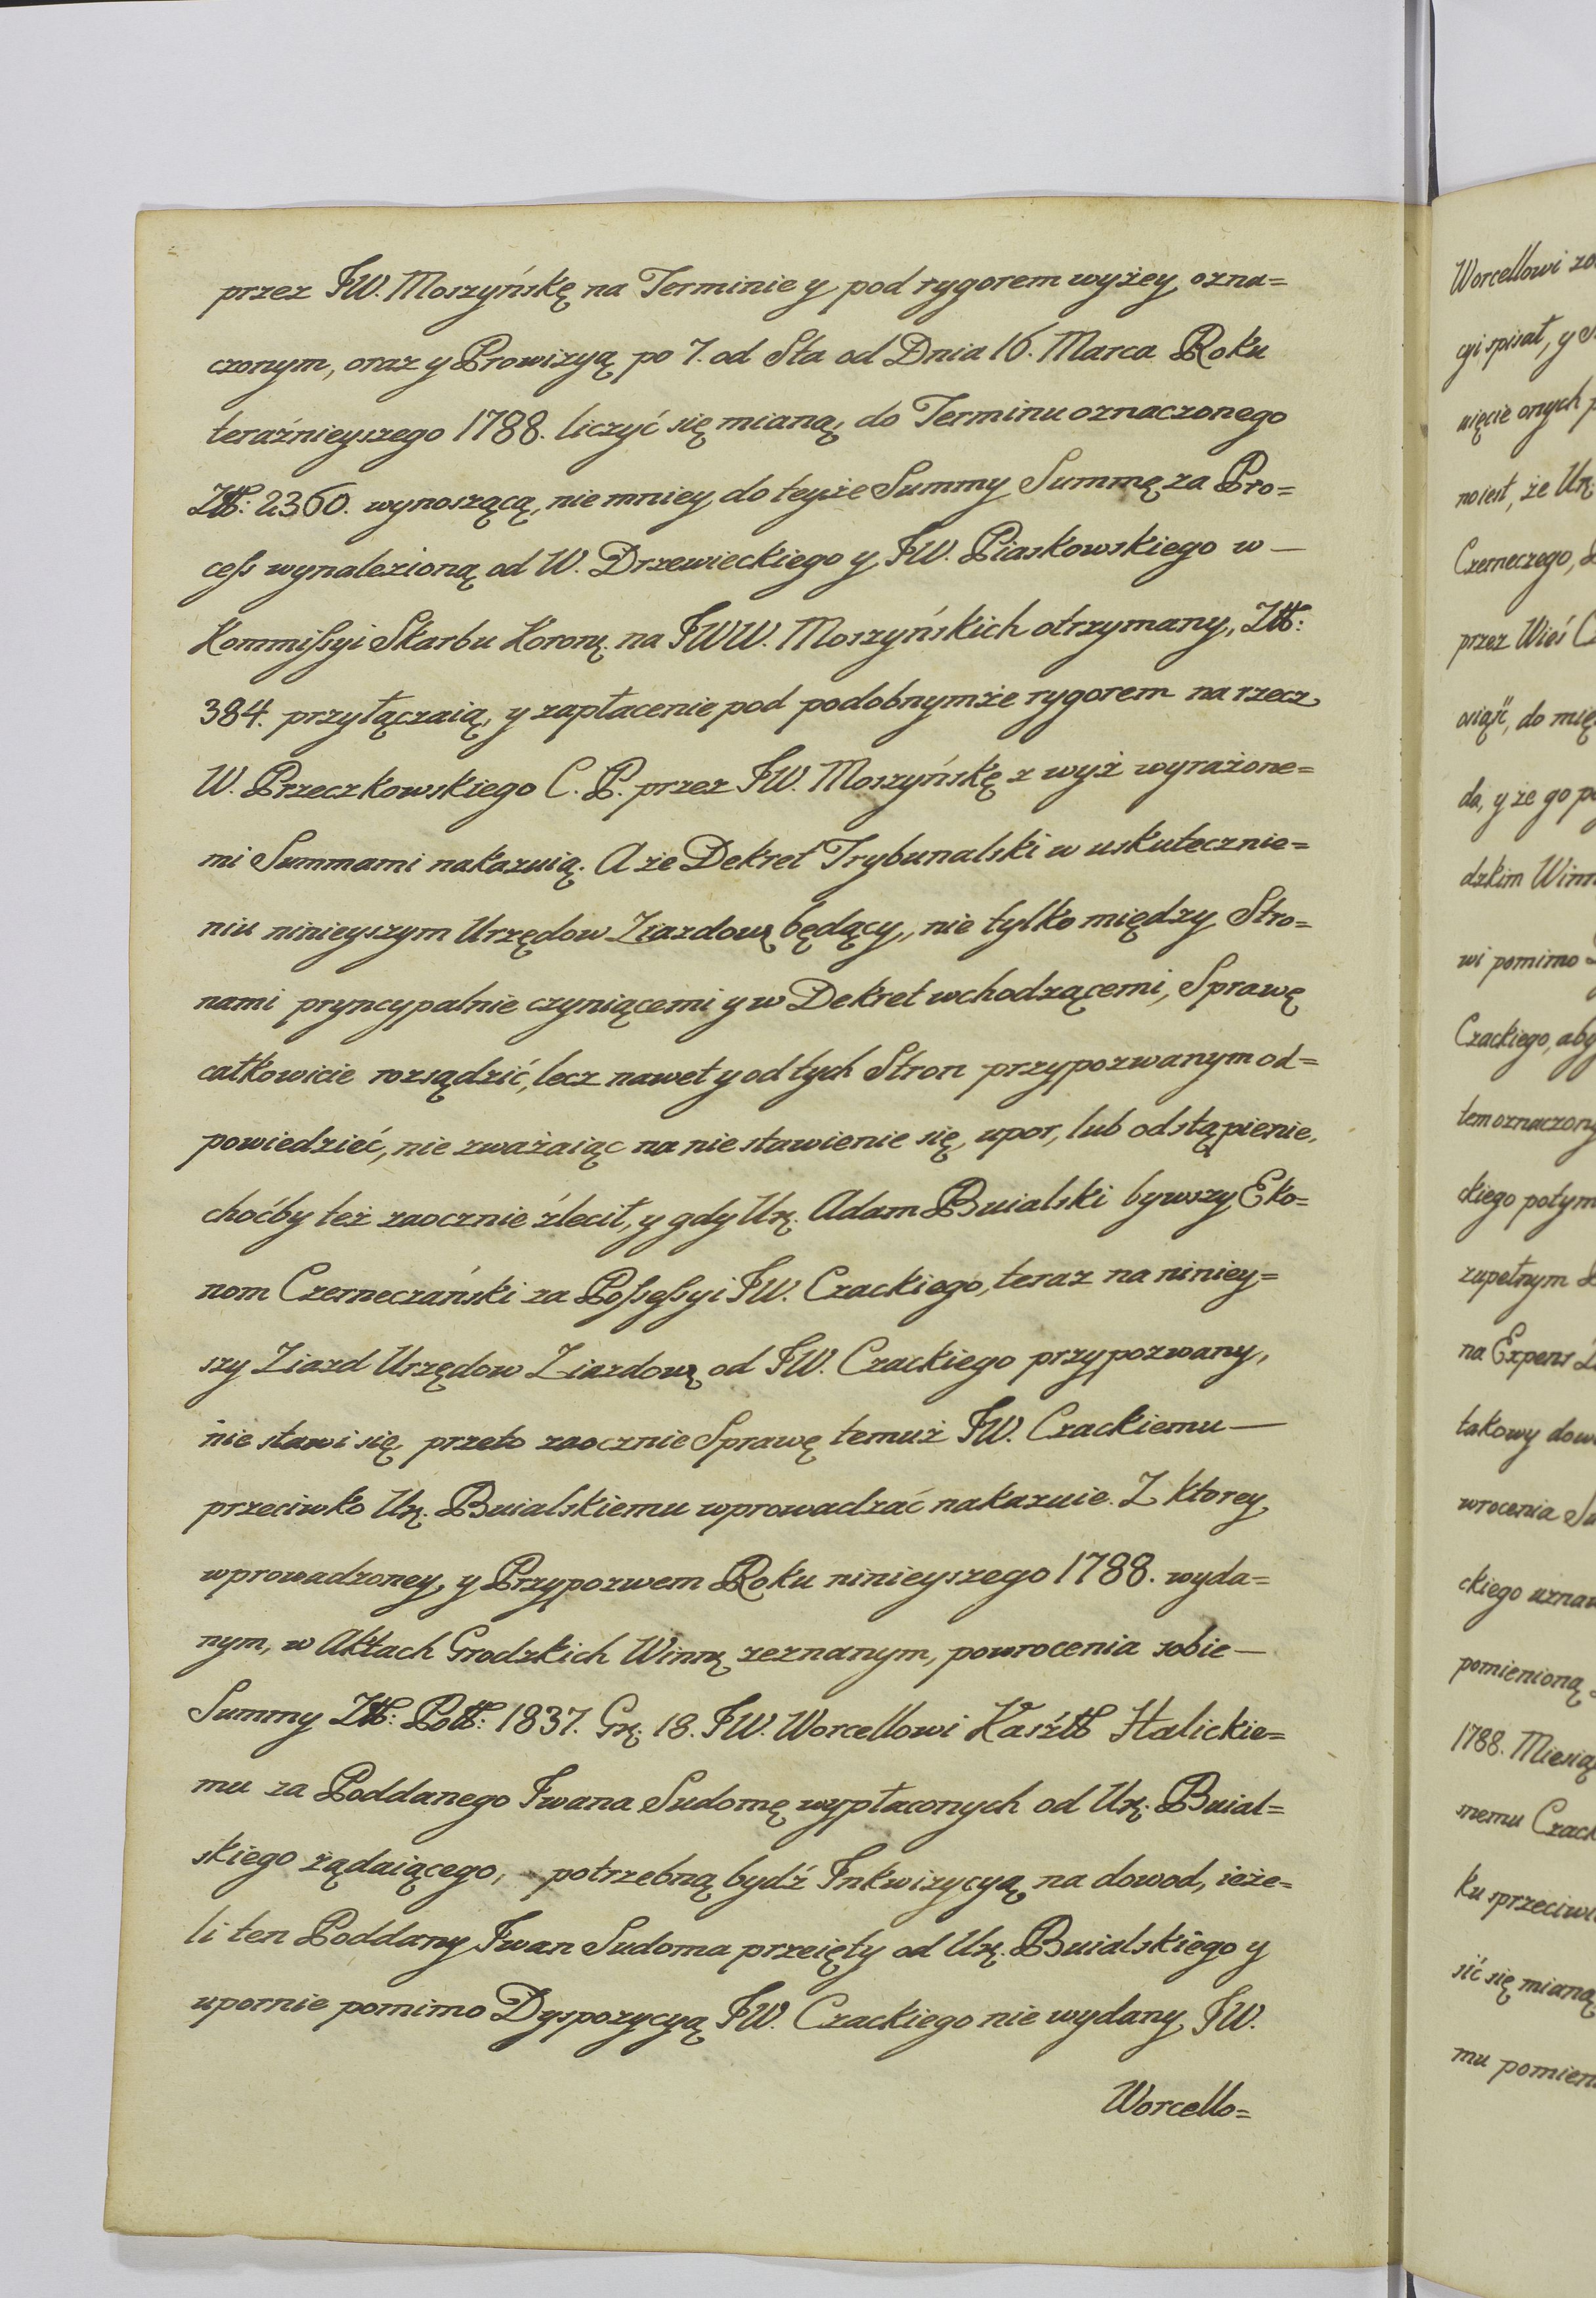 przez JW. Moszyńskę na Terminie y pod rygorem wyżey ozna=
czonym, oraz y Prowizyą po 7. od Sta od Dnia 16. Marca Roku
teraźnieyszego 1788. liczyć się mianą, do Terminu oznaczonego
Złł: 2360. wynoszącą, nie mniey do teyże Summy Summę za Pro=
ceſs wynalezioną od W. Drzewieckiego y JW. Piaskowskiego w —
Kommiſsyi Skarbu Koronę. na JWW. Moszyńskich otrzymany, Złł:
384. przyłączaią, y zapłacenie pod podobnymże rygorem na rzecz
W. Przeczkowskiego C. P. przez JW. Moszyńskę z wyż wyrażone=
mi Summami nakazuią. A że Dekret Trybunalski w uskutecznie=
niu ninieyszym Urzędow Ziazdowę będący, nie tylko między Stro=
nami pryncypalnie czyniącemi y w Dekret wchodzącemi, Sprawę
całkowicie rozsądzić, lecz nawet y od tych Stron przypozwanym od=
powiedzieć, nie zważaiąc na nie stawienie się, upor, lub odstąpienie,
choćby też zaocznie źlecił, y gdy Urę. Adam Buialski bywszy Eko=
nom Czerneczański za Poſseſsyi JW. Czackiego, teraz na niniey=
szy Ziazd Urzędow Ziazdowę od JW. Czackiego przypozwany,
nie stawi się przeto zaocznie Sprawę temuż JW. Czackiemu —
przeciwko Urę. Buialskiemu wprowadzać nakazuie. Z ktorey
wprowadzoney, y Przypozwem Roku ninieyszego 1788. wyda=
nym, w Aktach Grodzkich Winnę zeznanym, powrocenia sobie —
Summy Złł: Polł: 1837. Grę: 18. JW. Worcellowi Kasźtł Halickie=
mu za Poddanego Jwana Sudomę wypłaconych od Urę: Buial=
skiego żądaiącego, potrzebną bydź Jnkwizycyą, na dowod, ieże=
li ten Poddany Jwan Sudoma przeięty od Urę. Buialskiego y
upornie pomimo Dyspozycyą JW. Czackiego nie wydany JW.
Worcello=
Worcellowi
cyi spisał, y
nięcie onych
no iest, że Urę:
Czerneczego,
przez Wieś
osiąść, do
da, y że go
dzkim
wi pomimo
Czackiego, aby
tem
ckiego potym
zupełnym
na Expens
takowy
wrocenia
ckiego
pomienioną
1788.
snemu
ku
sić się mianą
mu